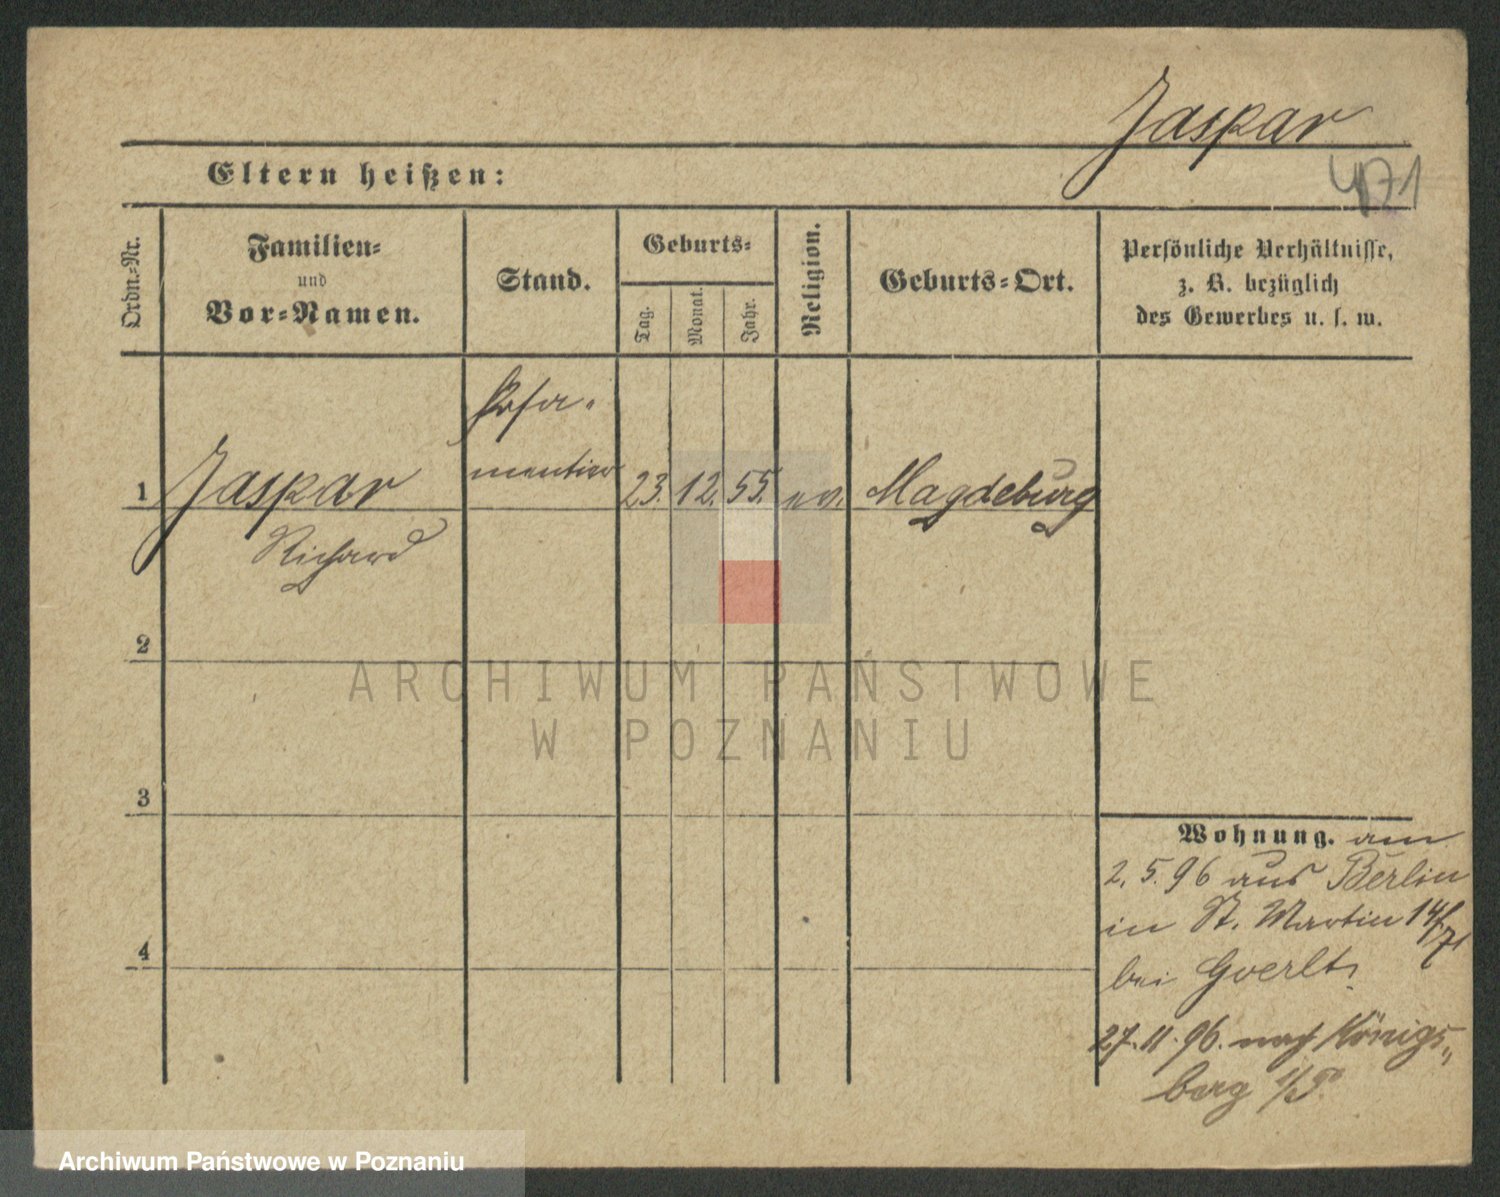 Jaspar
Eltern heißen:
471
Ordn.-Nr.
Familien-
und
Vor-Namen.
Stand.
Geburts-
Tag.
Monat.
Jahr.
Religion.
Geburts-Ort.
Persönliche Verhältnisse,
z. B. bezüglich
des Gewerbes u. s. w.
Posa-
1 Jaspar mentier 23. 12. 55. ev. Magdeburg
Richard
2
3
4
Wohnung. am
2. 5. 96 aus Berlin
in St. Martin
bei Goerlt
27. 11. 96. nach Königs-
berg i/P.
ARCHIWUM PAŃSTWOWE
W POZNANIU
Archiwum Państwowe w Poznaniu